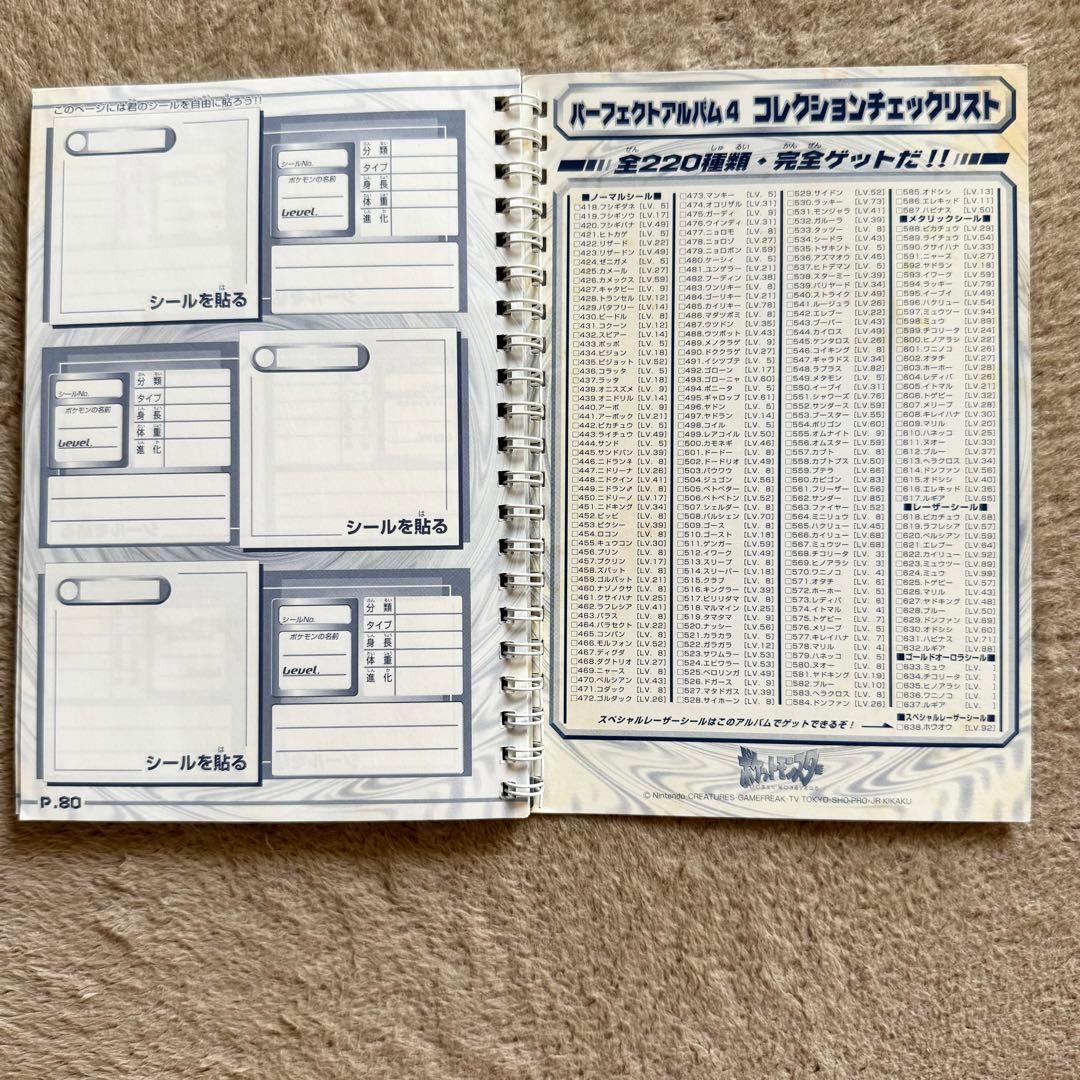 このページには君のシールを自由に貼ろう!!
シールNo.
ポケモンの名前
Level.
分類
タイプ
身長
体重
進化
シールを貼る
シールNo.
ポケモンの名前
Level.
分類
タイプ
身長
体重
進化
シールを貼る
シールNo.
ポケモンの名前
Level.
分類
タイプ
身長
体重
進化
シールを貼る
P.80
パーフェクトアルバム4 コレクションチェックリスト
全220種類・完全ゲットだ!!
■ノーマルシール■
□418.フシギダネ [LV. 5]
□419.フシギソウ [LV.17]
□420.フシギバナ [LV.49]
□421.ヒトカゲ [LV. 5]
□422.リザード [LV.22]
□423.リザードン [LV.49]
□424.ゼニガメ [LV. 5]
□425.カメール [LV.27]
□426.カメックス [LV.59]
□427.キャタピー [LV. 9]
□428.トランセル [LV.12]
□429.バタフリー [LV.14]
□430.ビードル [LV. 8]
□431.コクーン [LV.12]
□432.スピアー [LV.14]
□433.ポッポ [LV. 5]
□434.ピジョン [LV.18]
□435.ピジョット [LV.52]
□436.コラッタ [LV. 5]
□437.ラッタ [LV.18]
□438.オニスズメ [LV. 9]
□439.オニドリル [LV.14]
□440.アーボ [LV. 9]
□441.アーボック [LV.21]
□442.ピカチュウ [LV. 5]
□443.ライチュウ [LV.49]
□444.サンド [LV. 5]
□445.サンドパン [LV.39]
□446.ニドラン♀ [LV. 8]
□447.ニドリーナ [LV.26]
□448.ニドクイン [LV.41]
□449.ニドラン♂ [LV. 8]
□450.ニドリーノ [LV.17]
□451.ニドキング [LV.34]
□452.ピッピ [LV. 8]
□453.ピクシー [LV.39]
□454.ロコン [LV. 8]
□455.キュウコン [LV.30]
□456.プリン [LV. 8]
□457.プクリン [LV.17]
□458.ズバット [LV. 8]
□459.ゴルバット [LV.21]
□460.ナゾノクサ [LV. 8]
□461.クサイハナ [LV.25]
□462.ラフレシア [LV.41]
□463.パラス [LV. 8]
□464.パラセクト [LV.22]
□465.コンパン [LV. 8]
□466.モルフォン [LV.52]
□467.ディグダ [LV. 8]
□468.ダグトリオ [LV.27]
□469.ニャース [LV. 8]
□470.ペルシアン [LV.43]
□471.コダック [LV. 8]
□472.ゴルダック [LV.26]
□473.マンキー [LV. 5]
□474.オコリザル [LV.31]
□475.ガーディ [LV. 9]
□476.ウインディ [LV.31]
□477.ニョロモ [LV. 8]
□478.ニョロゾ [LV.27]
□479.ニョロボン [LV.59]
□480.ケーシィ [LV. 5]
□481.ユンゲラー [LV.21]
□482.フーディン [LV.38]
□483.ワンリキー [LV. 8]
□484.ゴーリキー [LV.21]
□485.カイリキー [LV.78]
□486.マダツボミ [LV. 8]
□487.ウツドン [LV.35]
□488.ウツボット [LV.43]
□489.メノクラゲ [LV. 9]
□490.ドククラゲ [LV.27]
□491.イシツブテ [LV. 5]
□492.ゴローン [LV.17]
□493.ゴローニャ [LV.60]
□494.ポニータ [LV. 5]
□495.ギャロップ [LV.61]
□496.ヤドン [LV. 5]
□497.ヤドラン [LV.14]
□498.コイル [LV. 5]
□499.レアコイル [LV.50]
□500.カモネギ [LV.46]
□501.ドードー [LV. 8]
□502.ドードリオ [LV.49]
□503.パウワウ [LV. 8]
□504.ジュゴン [LV.56]
□505.ベトベター [LV. 8]
□506.ベトベトン [LV.52]
□507.シェルダー [LV. 8]
□508.パルシェン [LV.70]
□509.ゴース [LV. 8]
□510.ゴースト [LV.18]
□511.ゲンガー [LV.59]
□512.イワーク [LV.49]
□513.スリープ [LV. 8]
□514.スリーパー [LV.18]
□515.クラブ [LV. 8]
□516.キングラー [LV.39]
□517.ビリリダマ [LV. 8]
□518.マルマイン [LV.25]
□519.タマタマ [LV. 9]
□520.ナッシー [LV.56]
□521.カラカラ [LV. 5]
□522.ガラガラ [LV.12]
□523.サワムラー [LV.53]
□524.エビワラー [LV.53]
□525.ベロリンガ [LV.49]
□526.ドガース [LV. 9]
□527.マタドガス [LV.39]
□528.サイホーン [LV. 8]
□529.サイドン [LV.52]
□530.ラッキー [LV.73]
□531.モンジャラ [LV.41]
□532.ガルーラ [LV.39]
□533.タッツー [LV. 8]
□534.シードラ [LV.43]
□535.トサキント [LV. 5]
□536.アズマオウ [LV.45]
□537.ヒトデマン [LV. 5]
□538.スターミー [LV.39]
□539.バリヤード [LV.34]
□540.ストライク [LV.49]
□541.ルージュラ [LV.26]
□542.エレブー [LV.22]
□543.ブーバー [LV.43]
□544.カイロス [LV.49]
□545.ケンタロス [LV.26]
□546.コイキング [LV. 8]
□547.ギャラドス [LV.34]
□548.ラプラス [LV.82]
□549.メタモン [LV. 5]
□550.イーブイ [LV.31]
□551.シャワーズ [LV.76]
□552.サンダース [LV.59]
□553.ブースター [LV.55]
□554.ポリゴン [LV.60]
□555.オムナイト [LV. 9]
□556.オムスター [LV.59]
□557.カブト [LV. 8]
□558.カブトプス [LV.50]
□559.プテラ [LV.66]
□560.カビゴン [LV.83]
□561.フリーザー [LV.56]
□562.サンダー [LV.85]
□563.ファイヤー [LV.52]
□564.ミニリュウ [LV. 8]
□565.ハクリュー [LV.45]
□566.カイリュー [LV.68]
□567.ミュウツー [LV.68]
□568.チコリータ [LV. 3]
□569.ヒノアラシ [LV. 3]
□570.ワニノコ [LV. 4]
□571.オタチ [LV. 6]
□572.ホーホー [LV. 5]
□573.レディバ [LV. 6]
□574.イトマル [LV. 4]
□575.トゲピー [LV. 7]
□576.メリープ [LV. 5]
□577.キレイハナ [LV. 7]
□578.マリル [LV. 4]
□579.ハネッコ [LV. 5]
□580.ヌオー [LV. 8]
□581.ヤドキング [LV.19]
□582.ブルー [LV.10]
□583.ヘラクロス [LV. 8]
□584.ドンファン [LV.26]
□585.オドシシ [LV.13]
□586.エレキッド [LV.11]
□587.ハピナス [LV.50]
■メタリックシール■
□588.ピカチュウ [LV.29]
□589.ライチュウ [LV.54]
□590.クサイハナ [LV.33]
□591.ニャース [LV.27]
□592.ヤドラン [LV.18]
□593.イワーク [LV.59]
□594.ラッキー [LV.79]
□595.イーブイ [LV.49]
□596.ハクリュー [LV.54]
□597.ミュウツー [LV.94]
□598.ミュウ [LV.89]
□599.チコリータ [LV.24]
□600.ヒノアラシ [LV.22]
□601.ワニノコ [LV.26]
□602.オタチ [LV.27]
□603.ホーホー [LV.28]
□604.レディバ [LV.26]
□605.イトマル [LV.21]
□606.トゲピー [LV.32]
□607.メリープ [LV.28]
□608.キレイハナ [LV.30]
□609.マリル [LV.20]
□610.ハネッコ [LV.25]
□611.ヌオー [LV.33]
□612.ブルー [LV.37]
□613.ヘラクロス [LV.34]
□614.ドンファン [LV.56]
□615.オドシシ [LV.40]
□616.エレキッド [LV.36]
□617.ルギア [LV.65]
■レーザーシール■
□618.ピカチュウ [LV.68]
□619.ラフレシア [LV.57]
□620.ペルシアン [LV.59]
□621.エレブー [LV.64]
□622.カイリュー [LV.92]
□623.ミュウツー [LV.89]
□624.ミュウ [LV.99]
□625.トゲピー [LV.57]
□626.マリル [LV.43]
□627.ヤドキング [LV.48]
□628.ブルー [LV.50]
□629.ドンファン [LV.69]
□630.オドシシ [LV.60]
□631.ハピナス [LV.71]
□632.ルギア [LV.88]
■ゴールドオーロラシール■
□633.ミュウ [LV. ]
□634.チコリータ [LV. ]
□635.ヒノアラシ [LV. ]
□636.ワニノコ [LV. ]
□637.ルギア [LV. ]
■スペシャルレーザーシール■
□638.ホウオウ [LV.92]
スペシャルレーザーシールはこのアルバムでゲットできるぞ!
ポケットモンスター
© Nintendo・CREATURES・GAMEFREAK・TV TOKYO・SHO-PRO・JR KIKAKU